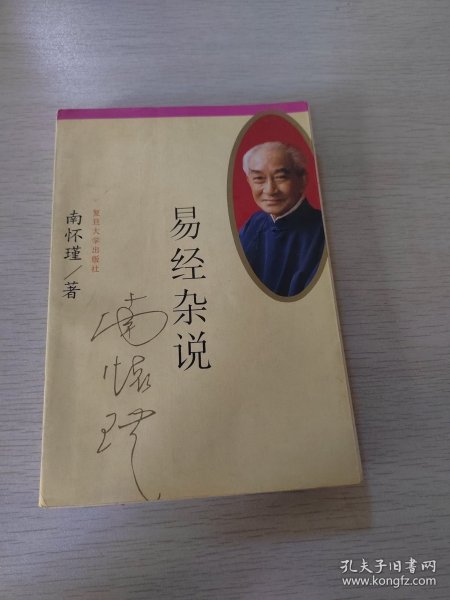 易经杂说
南怀瑾／著
复旦大学出版社
南怀瑾
孔夫子旧书网
www.kongfz.com